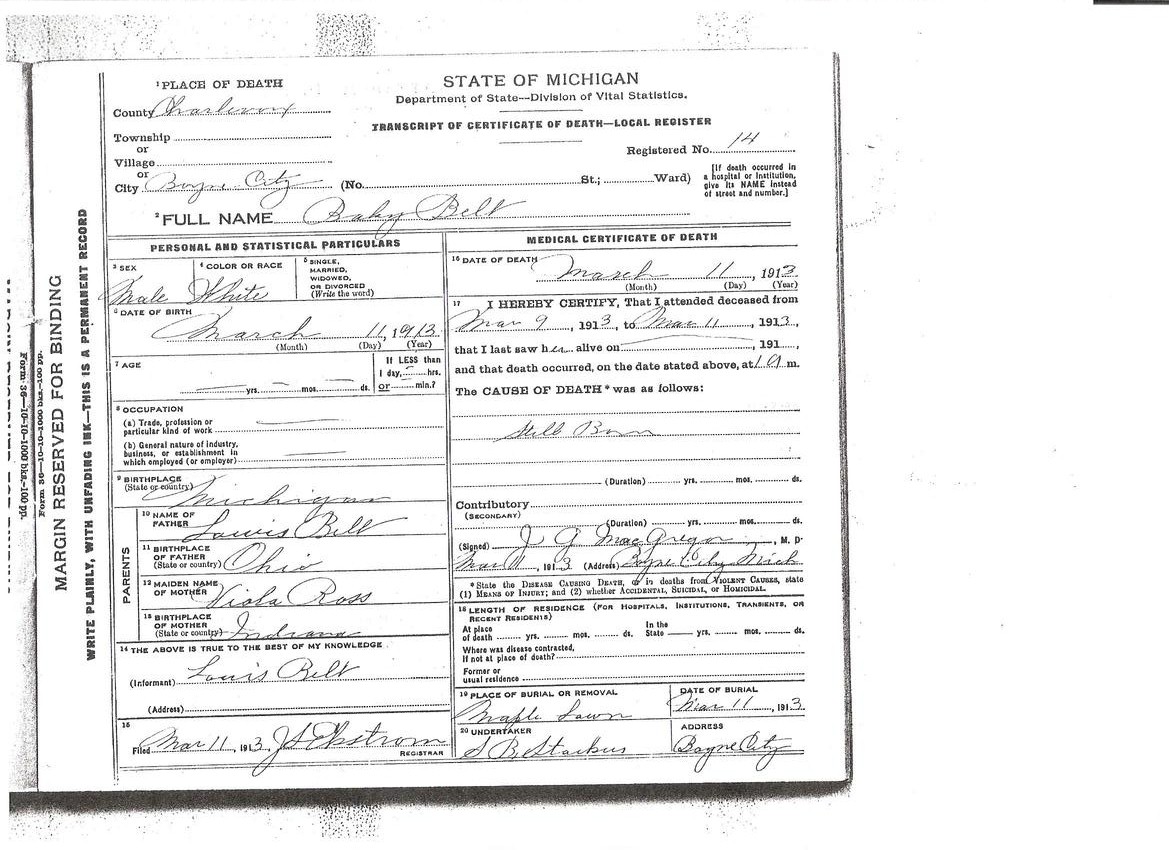 ¹PLACE OF DEATH
County Charlevoix
Township
or
Village
or
City Boyne City (No. St.; Ward)
STATE OF MICHIGAN
Department of State—Division of Vital Statistics.
TRANSCRIPT OF CERTIFICATE OF DEATH—LOCAL REGISTER
Registered No. 14
[If death occurred in
a hospital or institution,
give its NAME instead
of street and number.]
²FULL NAME Baby Belt
PERSONAL AND STATISTICAL PARTICULARS
³ SEX
Male
⁴ COLOR OR RACE
White
⁵ SINGLE,
MARRIED,
WIDOWED,
OR DIVORCED
(Write the word)
⁶ DATE OF BIRTH
March 11, 1913
(Month) (Day) (Year)
⁷ AGE
If LESS than
1 day, hrs.
or min.?
yrs. mos. ds.
⁸ OCCUPATION
(a) Trade, profession or
particular kind of work
(b) General nature of industry,
business, or establishment in
which employed (or employer)
⁹ BIRTHPLACE
(State or country)
Michigan
PARENTS
¹⁰ NAME OF
FATHER
Lewis Belt
¹¹ BIRTHPLACE
OF FATHER
(State or country)
Ohio
¹² MAIDEN NAME
OF MOTHER
Viola Ross
¹³ BIRTHPLACE
OF MOTHER
(State or country)
Indiana
¹⁴ THE ABOVE IS TRUE TO THE BEST OF MY KNOWLEDGE
(Informant) Louis Belt
(Address)
¹⁵
Filed Mar 11, 1913 J S Ekstrom
REGISTRAR
MEDICAL CERTIFICATE OF DEATH
¹⁶ DATE OF DEATH
March 11, 1913
(Month) (Day) (Year)
¹⁷ I HEREBY CERTIFY, That I attended deceased from
Mar 9, 1913, to Mar 11, 1913,
that I last saw h alive on , 191 ,
and that death occurred, on the date stated above, at m.
The CAUSE OF DEATH* was as follows:
Still Born
(Duration) yrs. mos. ds.
Contributory
(SECONDARY)
(Duration) yrs. mos. ds.
(Signed) J G MacGregor, M. D.
Mar 11, 1913 (Address) Boyne City Mich
*State the DISEASE CAUSING DEATH, or in deaths from VIOLENT CAUSES, state
(1) MEANS OF INJURY; and (2) whether ACCIDENTAL, SUICIDAL, or HOMICIDAL.
¹⁸ LENGTH OF RESIDENCE (FOR HOSPITALS, INSTITUTIONS, TRANSIENTS, OR
RECENT RESIDENTS)
At place
of death yrs. mos. ds.
In the
State yrs. mos. ds.
Where was disease contracted,
if not at place of death?
Former or
usual residence
¹⁹ PLACE OF BURIAL OR REMOVAL
Maple Lawn
DATE OF BURIAL
Mar 11, 1913
²⁰ UNDERTAKER
S B Stackus
ADDRESS
Boyne City
WRITE PLAINLY, WITH UNFADING INK—THIS IS A PERMANENT RECORD
MARGIN RESERVED FOR BINDING
Form 36—10-10-1000 bks-100 pp.
Form 36—10-10-1000 bks—100 pp.